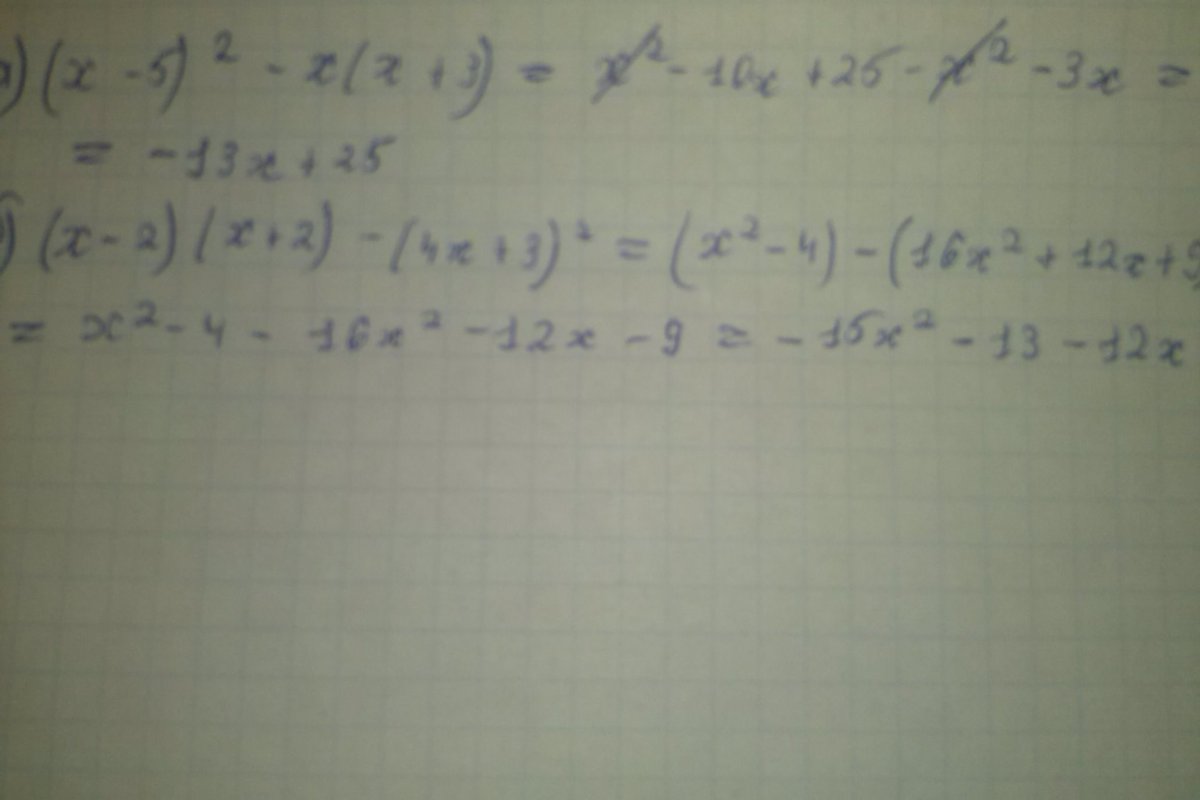 а) (x - 5)² - x(x + 3) = x² - 10x + 25 - x² - 3x =
= -13x + 25
б) (x - 2)(x + 2) - (4x + 3)² = (x² - 4) - (16x² + 12x + 9)
= x² - 4 - 16x² - 12x - 9 = - 15x² - 13 - 12x